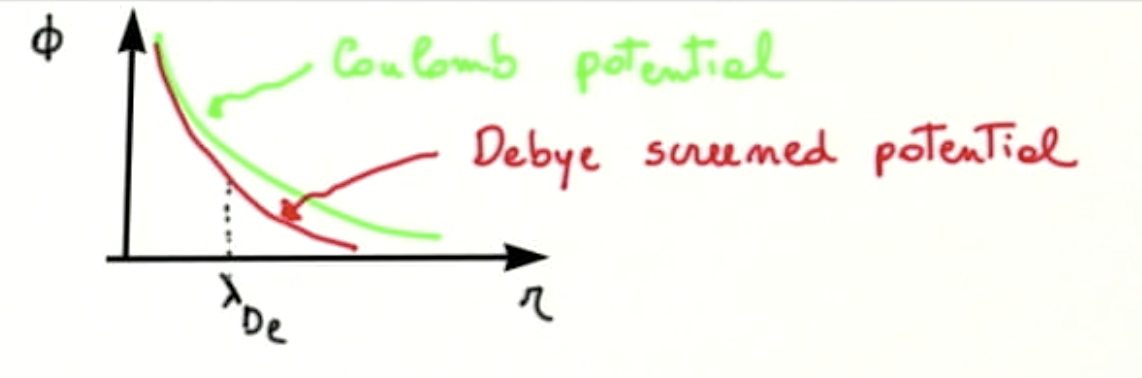 ϕ
Coulomb potential
Debye screened potential
λDe
r